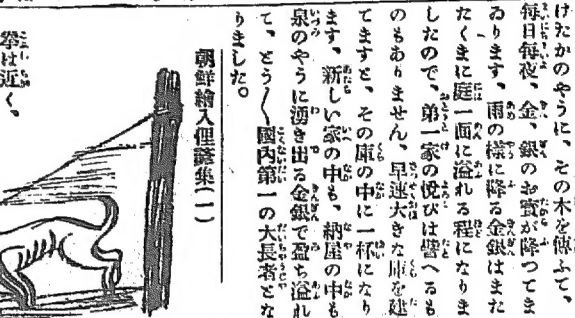 けたかのやうに、その木を傳ふて、
每日每夜、金、銀のお寳が降つてま
ゐります、雨の樣に降る金銀はまた
たくまに庭一面に溢れる程になりま
したので、弟一家の悅びは譬へるも
のもありません、早速大きな庫を建
てますと、その庫の中に一杯になり
ます、新しい家の中も、納屋の中も
泉のやうに湧き出る金銀で盈ち溢れ
て、とう〱國內第一の大長者とな
りました。
朝鮮繪入俚諺集(一)
拳は近く、